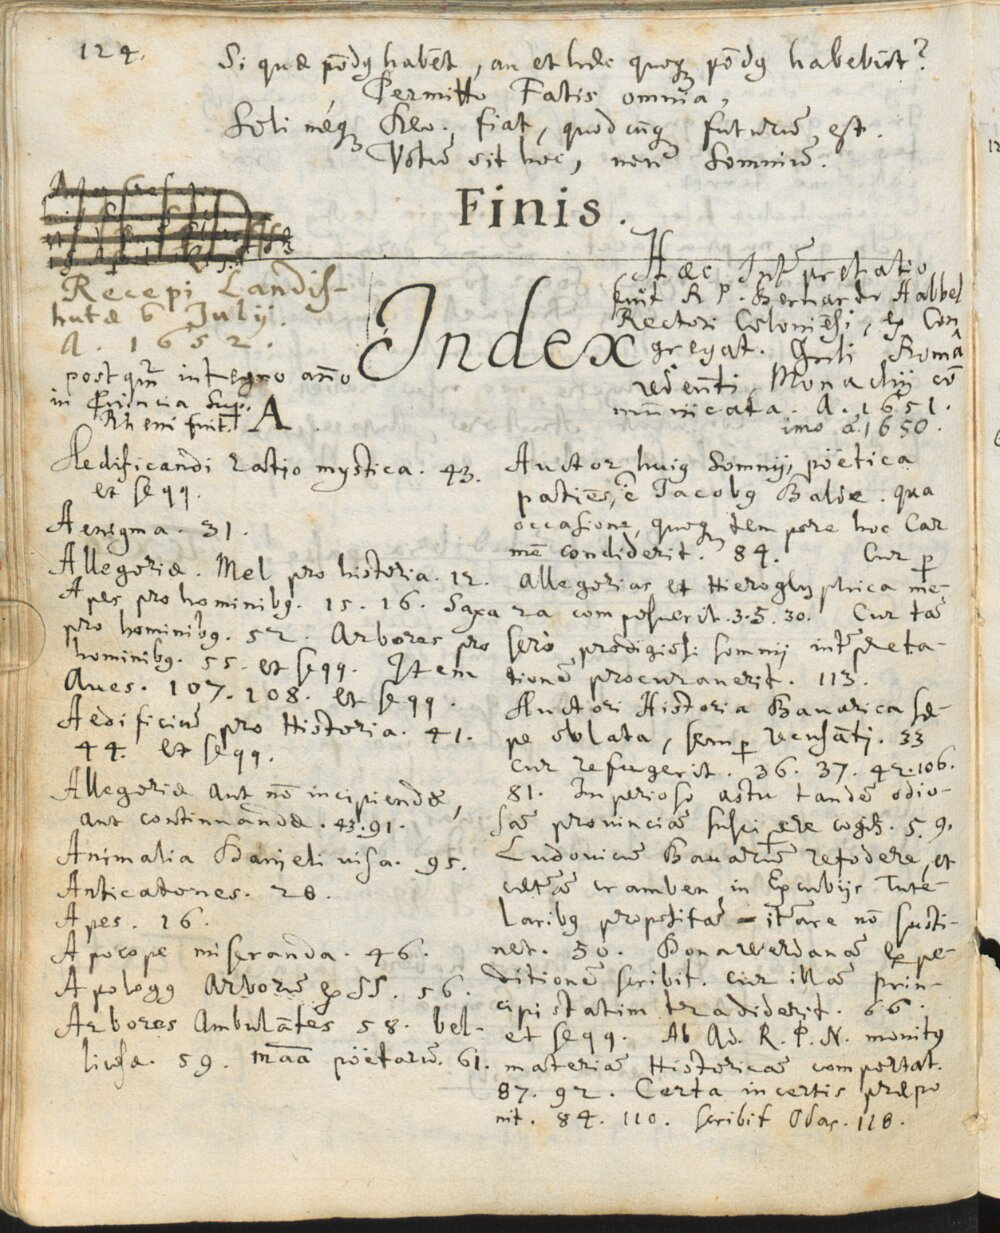 124.
Si quæ põdꝯ habẽt, an et hæc quoqꝫ põdꝯ habebũt?
Permitto Fatis omnia,
Soli meqꝫ Deo, fiat, quodcũqꝫ futurũ est.
Votũ sit hoc, non Somniũ.
Finis.
Recepi Landis-
hutæ 6 Julij.
A. 1652.
postqm̃ integro año
in Prouincia Sup.
Rheni fuit.
Hæc Intp̃retatio
fuit R. P. Bernardo Habbel
Rectori Coloniẽsi, ex Con
gregat. Gñli Româ
redeunti Monachij cõ
municata. A. 1651.
imo a. 1650.
Index
A.
Aedificandi ratio mystica. 43.
et seqq.
Aenigma. 31.
Allegoriæ. Mel pro historia. 12.
Apes pro hominibꝯ. 15. 16. Saxa
pro hominibꝯ. 52. Arbores pro
hominibꝯ. 55. et seqq. Item
Aues. 107. 108. et seqq.
Aedificiũ pro Historia. 41.
44. et seqq.
Allegoriæ aut nõ incipiendæ,
aut continuandæ. 43. 91.
Animalia Danieli uisa. 95.
Anticatones. 28.
Apes. 16.
Apocope miseranda. 46.
Apologꝯ Arborũ ex SS. 56.
Arbores Ambulãtes 58. bel-
licosæ. 59. poëtarũ. 61.
Auctor huiꝯ Somnij, poëtica
patiẽs, ẽ Jacobꝯ Balde. qua
occasione, quoqꝫ tempore hoc Car
mẽ condiderit. 84. Cur ꝑ
allegorias et Hieroglyphica me,
ra composuerit. 3. 5. 30. Cur tã
serò prodigiosi somnij intp̃reta-
tionẽ procurauerit. 113.
Auctori Historia Bauarica sæ-
pe oblata, semꝑ recusãti. 33
cur refugerit. 36. 37. 42. 106.
81. Imperioso astu tandẽ odio-
sã prouinciã suscipere cogit. 5. 9.
Ludouicũ Bauarũ refodere, et
crambem in Excubijs Tute-
laribꝯ propositã iterare nõ susti-
net. 30. Donawerdanã expe-
ditionẽ scribit. cur illã prin-
cipi statim tradiderit. 66.
et seqq. Ab Ad. R. P. N. monitꝯ
materiã Historicã comportat.
87. 92. Certa incertis præpo
nit. 84. 110. scribit Odas. 118.